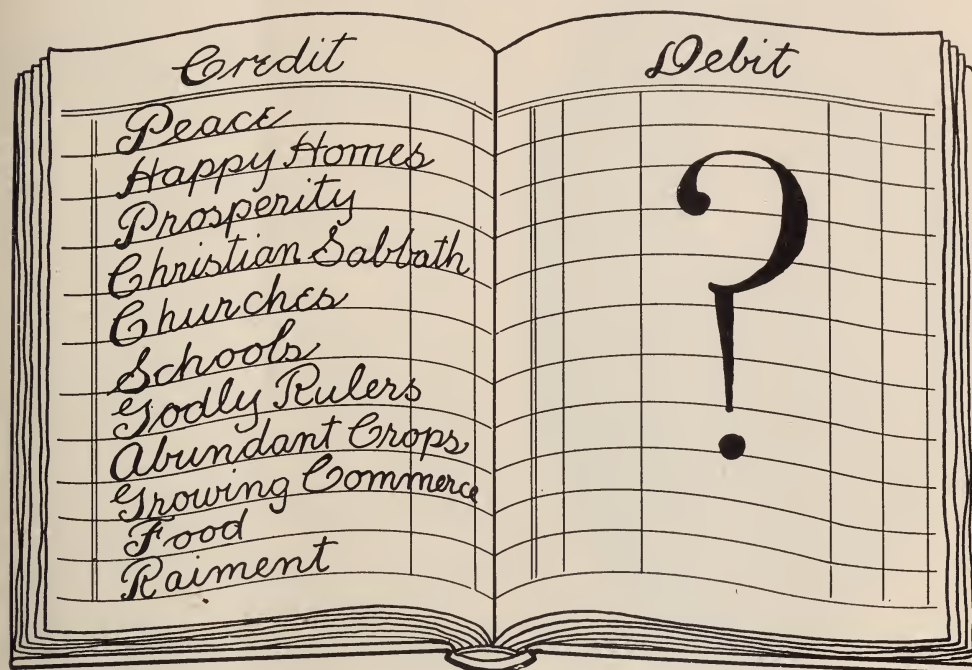 Credit
Peace
Happy Homes
Prosperity
Christian Sabbath
Churches
Schools
Godly Rulers
Abundant Crops
Growing Commerce
Food
Raiment
Debit
?